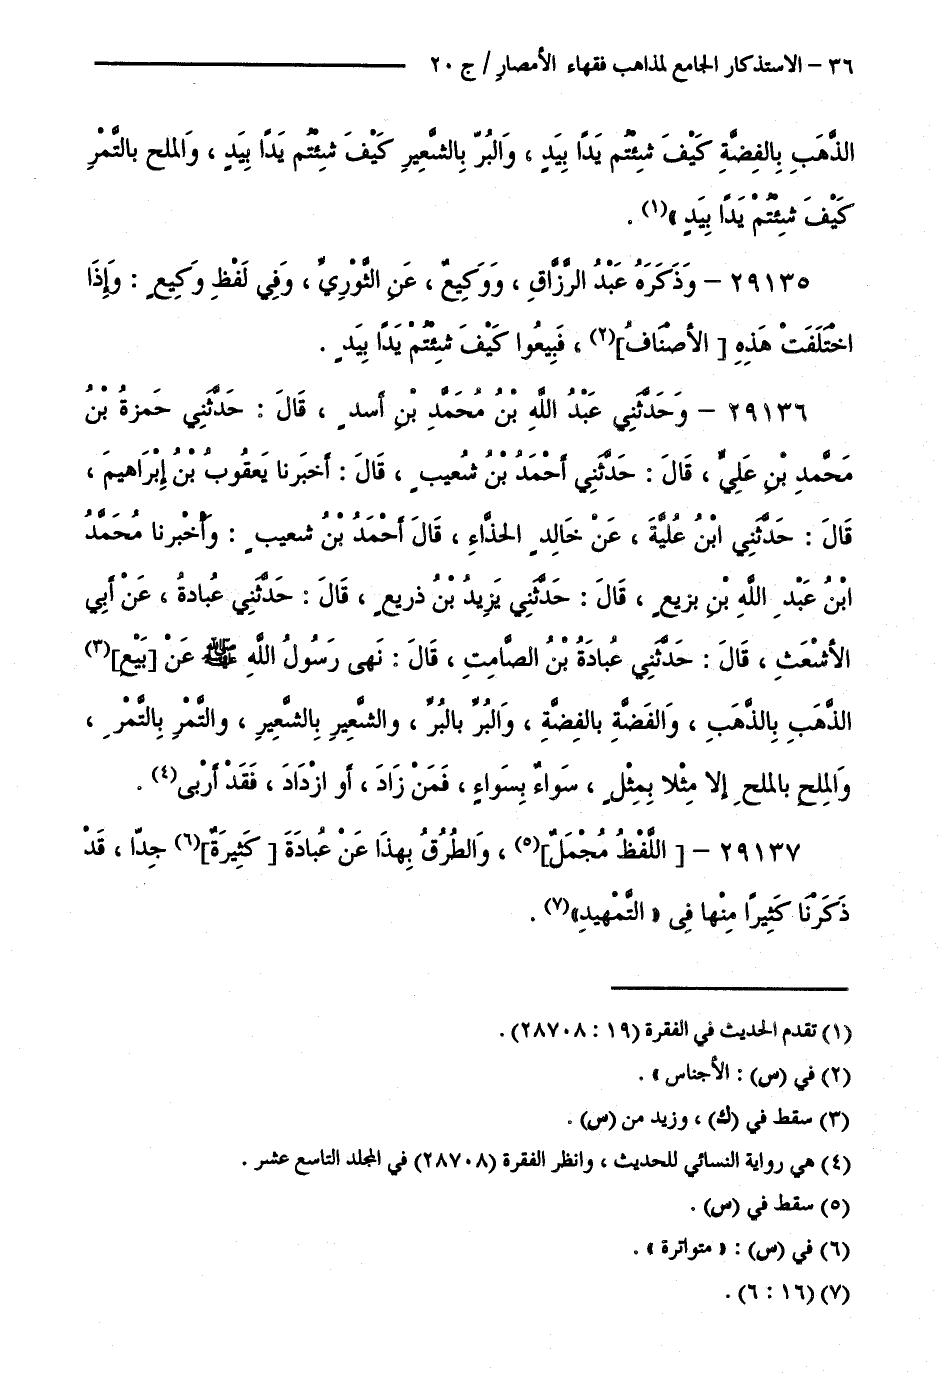 ٣٦ – الاستذكار الجامع لمذاهب فقهاء الأمصارِ / ج ٢٠
الذَّهَبِ بِالفِضَّةِ كَيْفَ شِئْتُم يَدًا بِيَدٍ ، وَالبُرّ بِالشَّعِيرِ كَيْفَ شِئْتُم يَدًا بِيَدٍ ، وَالملح بالتَّمْرِ
كَيْفَ شِئتُمْ يَدًا بِيَدٍ »(١) .
٢٩١٣٥ – وَذَكَرَهُ عَبْدُ الرَّزَّاقِ ، وَوَكِيعٌ ، عَنِ الثَّوْرِيِّ ، وَفِي لَفْظِ وَكِيعٍ : وَإِذَا
اخْتَلَفَتْ هَذِهِ [ الأصْنَافُ](٢) ، فَبِيعُوا كَيْفَ شِئْتُمْ يَدًا بِيَدٍ .
٢٩١٣٦ – وَحَدَّثَنِي عَبْدُ اللَّهِ بْنُ مُحَمَّدِ بْنِ أسدٍ ، قَالَ : حَدَّثَنِي حَمزةُ بْنُ
مَحَمَّدِ بْنِ عَلِيٍّ ، قَالَ : حَدَّثَنِي أَحْمَدُ بْنُ شُعيبٍ ، قَالَ : أخبَرنا يَعقُوبُ بْنُ إِبْرَاهيمَ ،
قَالَ : حَدَّثَنِي ابْنُ عُليَّةَ ، عَنْ خَالِدٍ الحذَّاءِ ، قَالَ أَحْمَدُ بْنُ شعيبٍ : وَأَخْبرنا مُحَمَّدُ
ابْنُ عَبْدِ اللَّهِ بْنِ بزيعٍ ، قَالَ : حَدَّثَنِي يَزِيدُ بْنُ ذريعٍ ، قَالَ : حَدَّثَنِي عُبادةُ ، عَنْ أَبِي
الأشْعَثِ ، قَالَ : حَدَّثَنِي عُبادَةُ بْنُ الصَّامِتِ ، قَالَ : نَهى رَسُولُ اللَّهِ ﷺ عَنْ [بَيْعِ](٣)
الذَّهَبِ بِالذَّهَبِ ، وَالفَضَّةِ بالفِضَّةِ ، وَالبُرِّ بالبُرِّ ، والشَّعِيرِ بِالشَّعِيرِ ، والتَّمْرِ بِالتَّمْرِ ،
وَالمِلحِ بالملحِ إِلا مِثْلا بِمِثْلٍ ، سَواءً بِسَواءٍ ، فَمَنْ زَادَ ، أو ازْدَادَ ، فَقَدْ أرْبى(٤) .
٢٩١٣٧ – [ اللَّفْظُ مُجْمَلٌ](٥) ، وَالطُرُقُ بِهذَا عَنْ عُبادَةَ [ كَثِيرَةٌ](٦) جِدّا ، قَدْ
ذَكَرْنَا كَثِيرًا مِنْها فِي « التَّمْهِيدِ»(٧) .
(١) تقدم الحديث في الفقرة (١٩ : ٢٨٧٠٨) .
(٢) في (س) : الأجناس » .
(٣) سقط في (ك) ، وزيد من (س) .
(٤) هي رواية النسائي للحديث ، وانظر الفقرة (٢٨٧٠٨) في المجلد التاسع عشر .
(٥) سقط في (س) .
(٦) في (س) : « متواترة » .
(٧) (١٦ : ٦) .